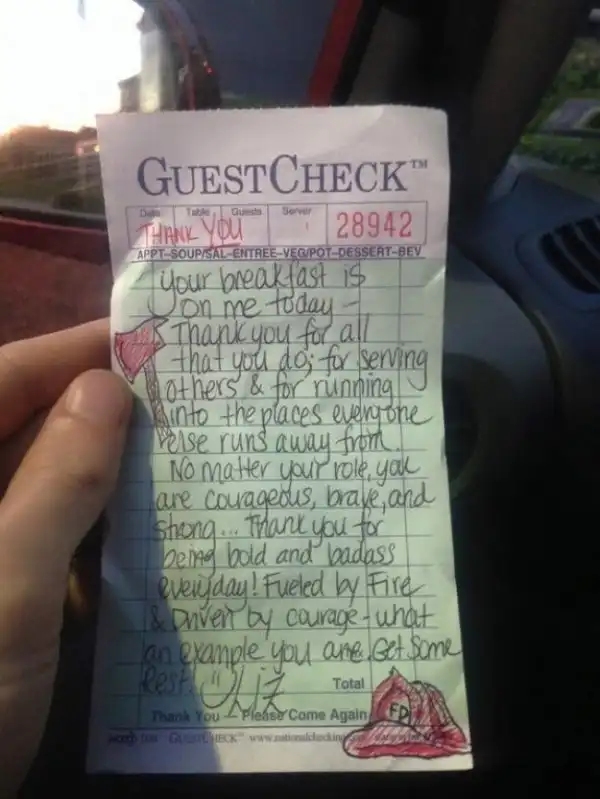 GUESTCHECK™
Date Table Guests Server
THANK YOU 28942
APPT-SOUP/SAL-ENTREE-VEG/POT-DESSERT-BEV
your breakfast is
on me today –
Thank you for all
that you do; for serving
others & for running
into the places everyone
else runs away from.
No matter your role, you
are courageous, brave, and
strong... Thank you for
being bold and badass
everyday! Fueled by Fire
& Driven by courage - what
an example you are. Get Some
Rest! Liz
Total
FD
Thank You – Please Come Again
GUESTCHECK™ www.nationalchecking